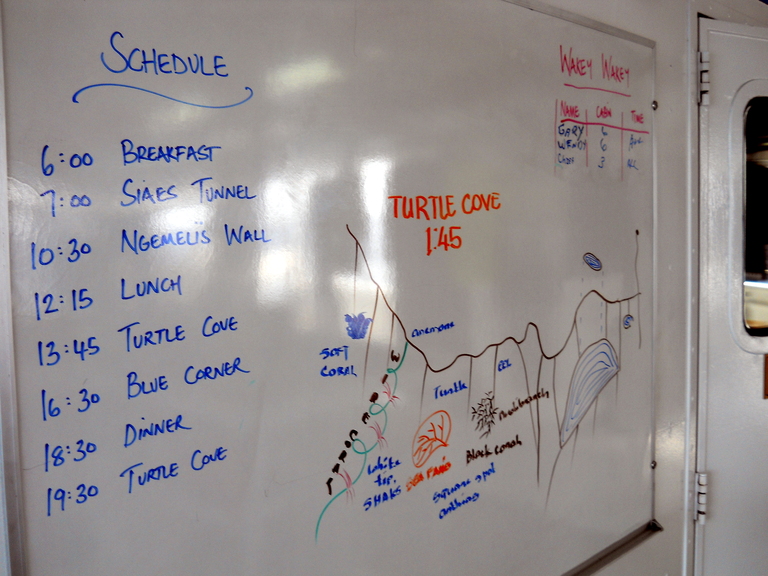 SCHEDULE
6:00 BREAKFAST
7:00 SIAES TUNNEL
10:30 NGEMELIS WALL
12:15 LUNCH
13:45 TURTLE COVE
16:30 BLUE CORNER
18:30 DINNER
19:30 TURTLE COVE
WAKEY WAKEY
NAME CABIN TIME
GARY 6
WENDY 6
3
TURTLE COVE
1:45
SOFT
CORAL
anemone
WIRE CORAL
Turtle
EEL
Nudibranch
Black coral
SEA FANS
white
tip
SHAKS
Square spot
anthias